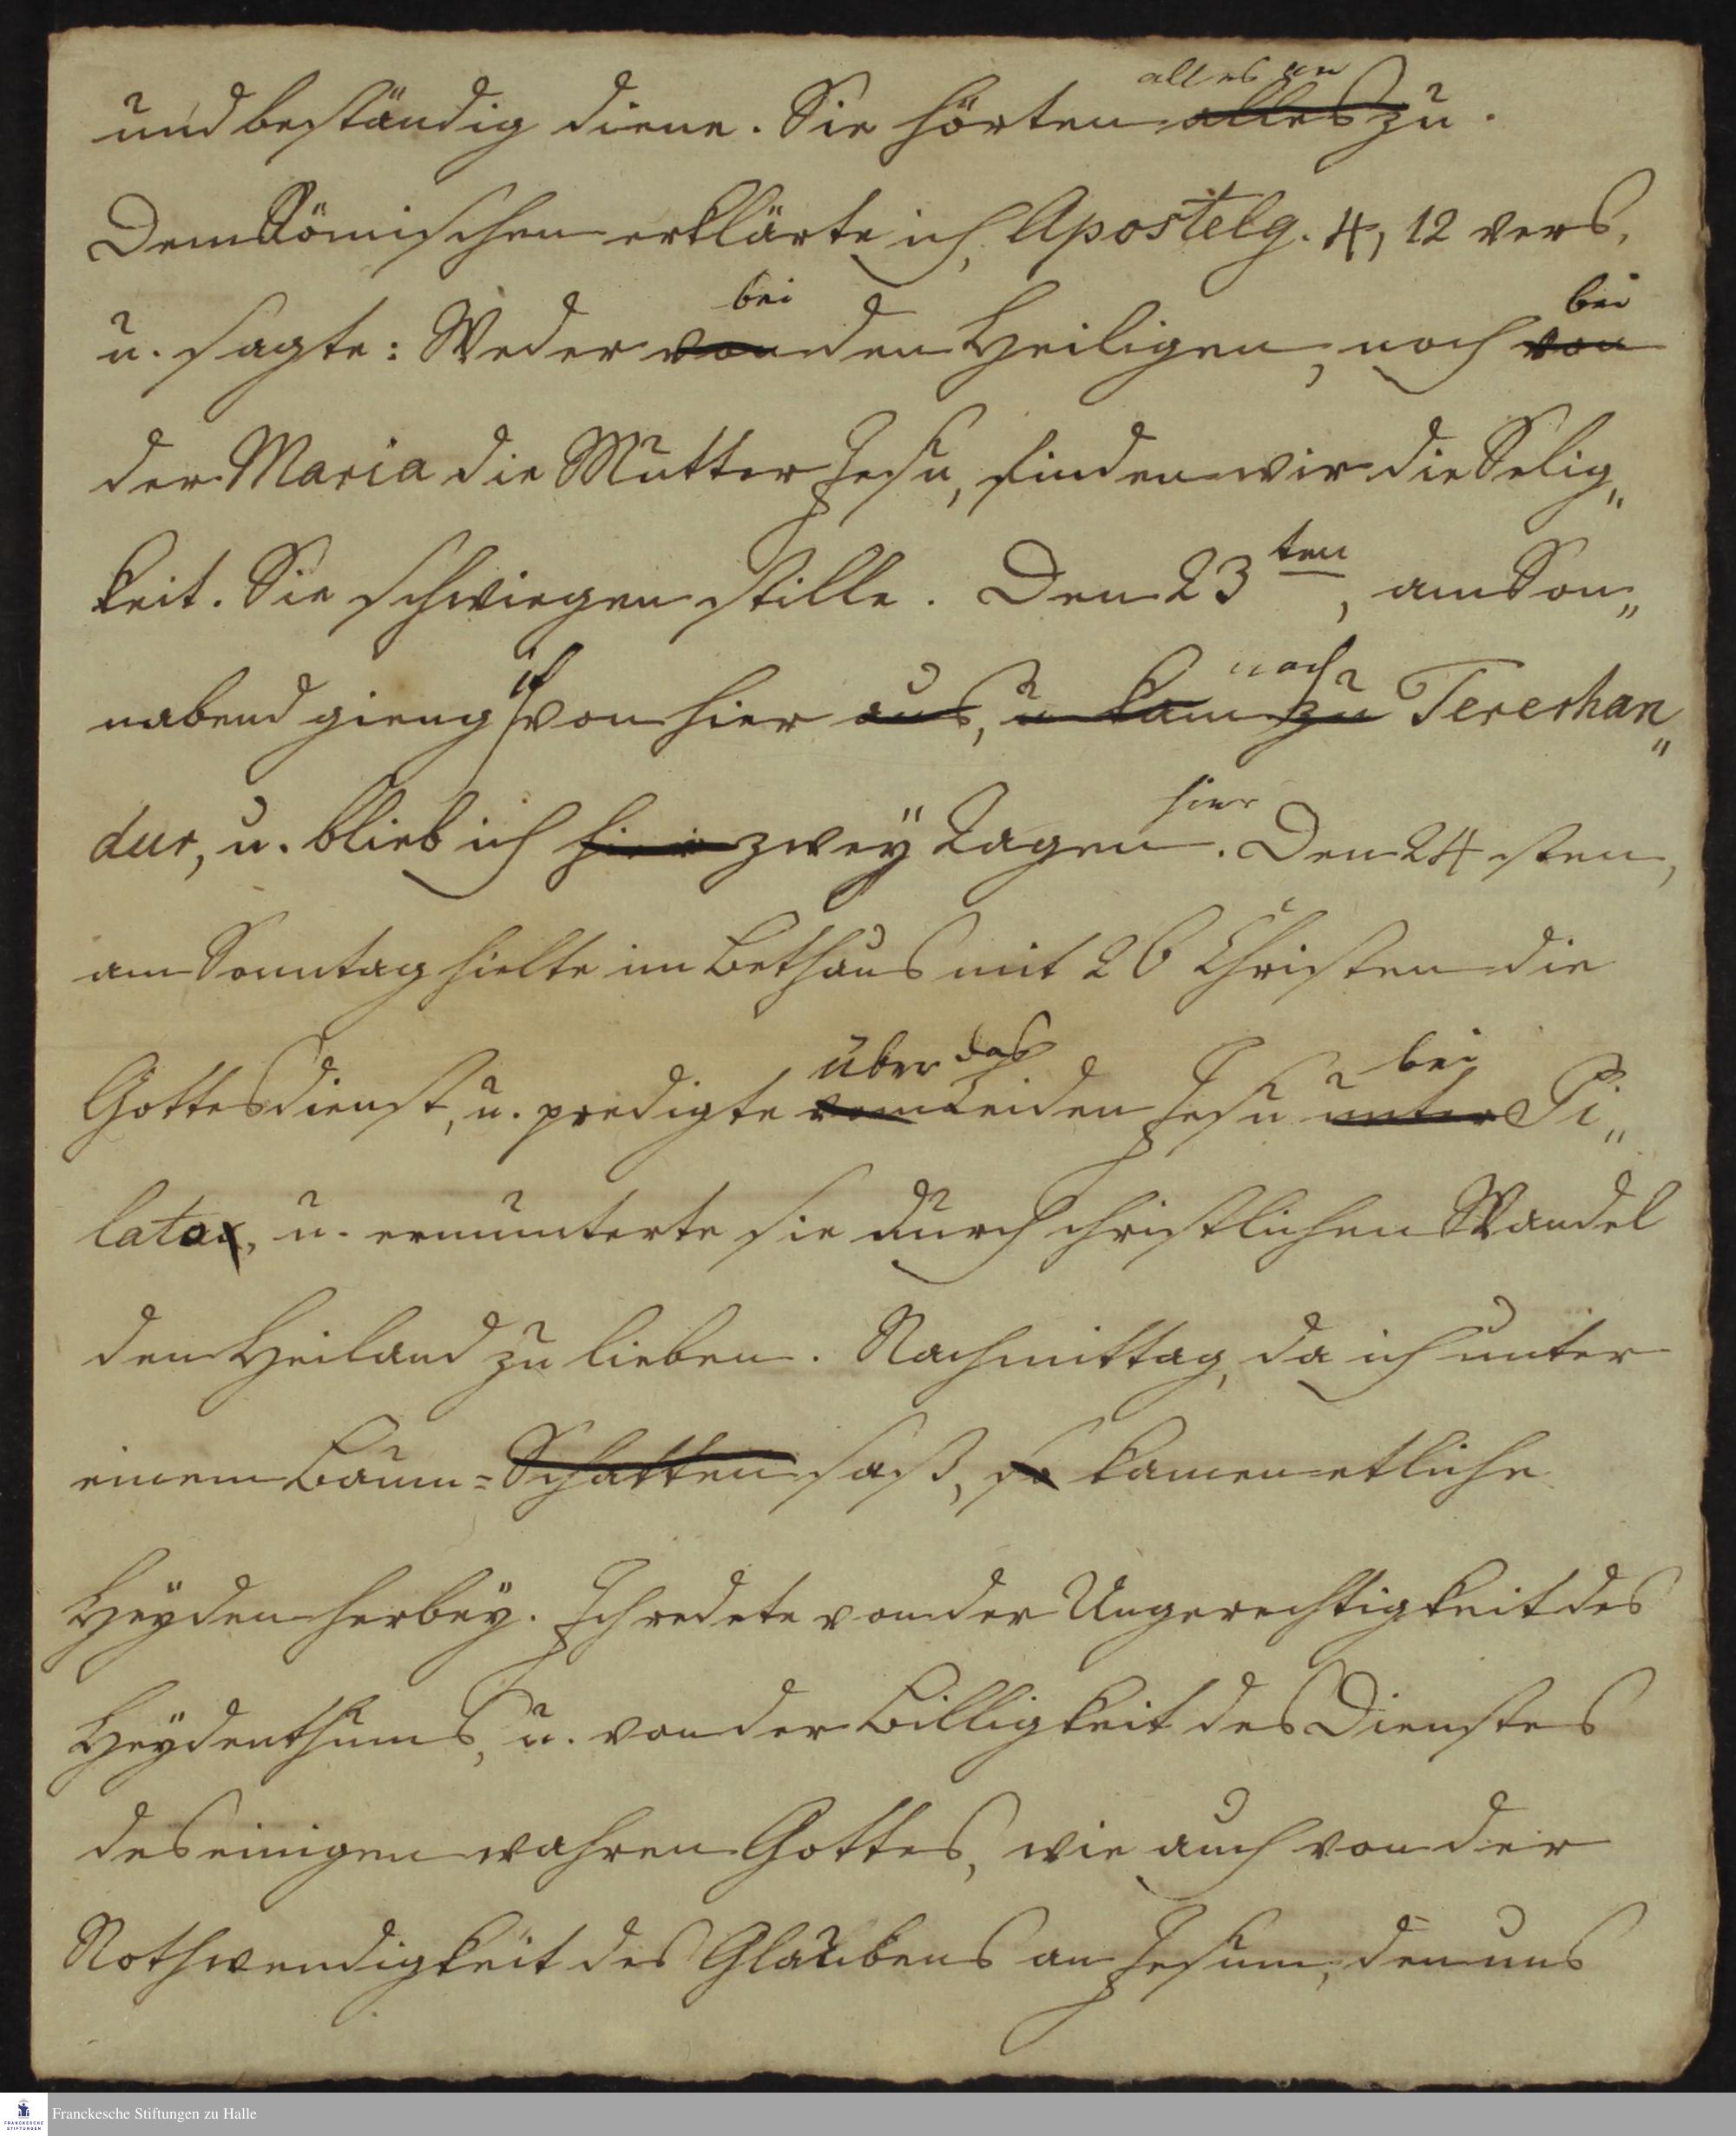 und beständig diene. Sie hörten alles zu.
alles an
Dem Römischen erklärte ich Apostelg. 4, 12 vers,
u. sagte: Weder von bei den Heiligen, noch von bei
der Maria die Mutter Jesu, finden wir die Selig„
keit. Sie schwiegen stille. Den 23ten, am Son„
nabend gieng ich von hier aus, u kam zu nach Tereshan„
dur, u. blieb ich hier zweÿ Tagen hier. Den 24sten,
am Sonntag hielte im Bethaus mit 26 Christen die
Gottesdienst, u. predigte vom über das Leiden Jesu unter bei Pi„
lato, u. ermunterte sie durch christlichen Wandel
den Heiland zu lieben. Nachmittag, da ich unter
einem Baum=Schatten saß, so kamen etliche
Heÿden herbeÿ. Ich redete von der Ungerechtigkeit des
Heÿdenthums, u. von der Billigkeit des Dienstes
des einigen wahren Gottes, wie auch von der
Nothwendigkeit des Glaubens an Jesum, den uns
Franckesche Stiftungen zu Halle
FRANCKESCHE
STIFTUNGEN